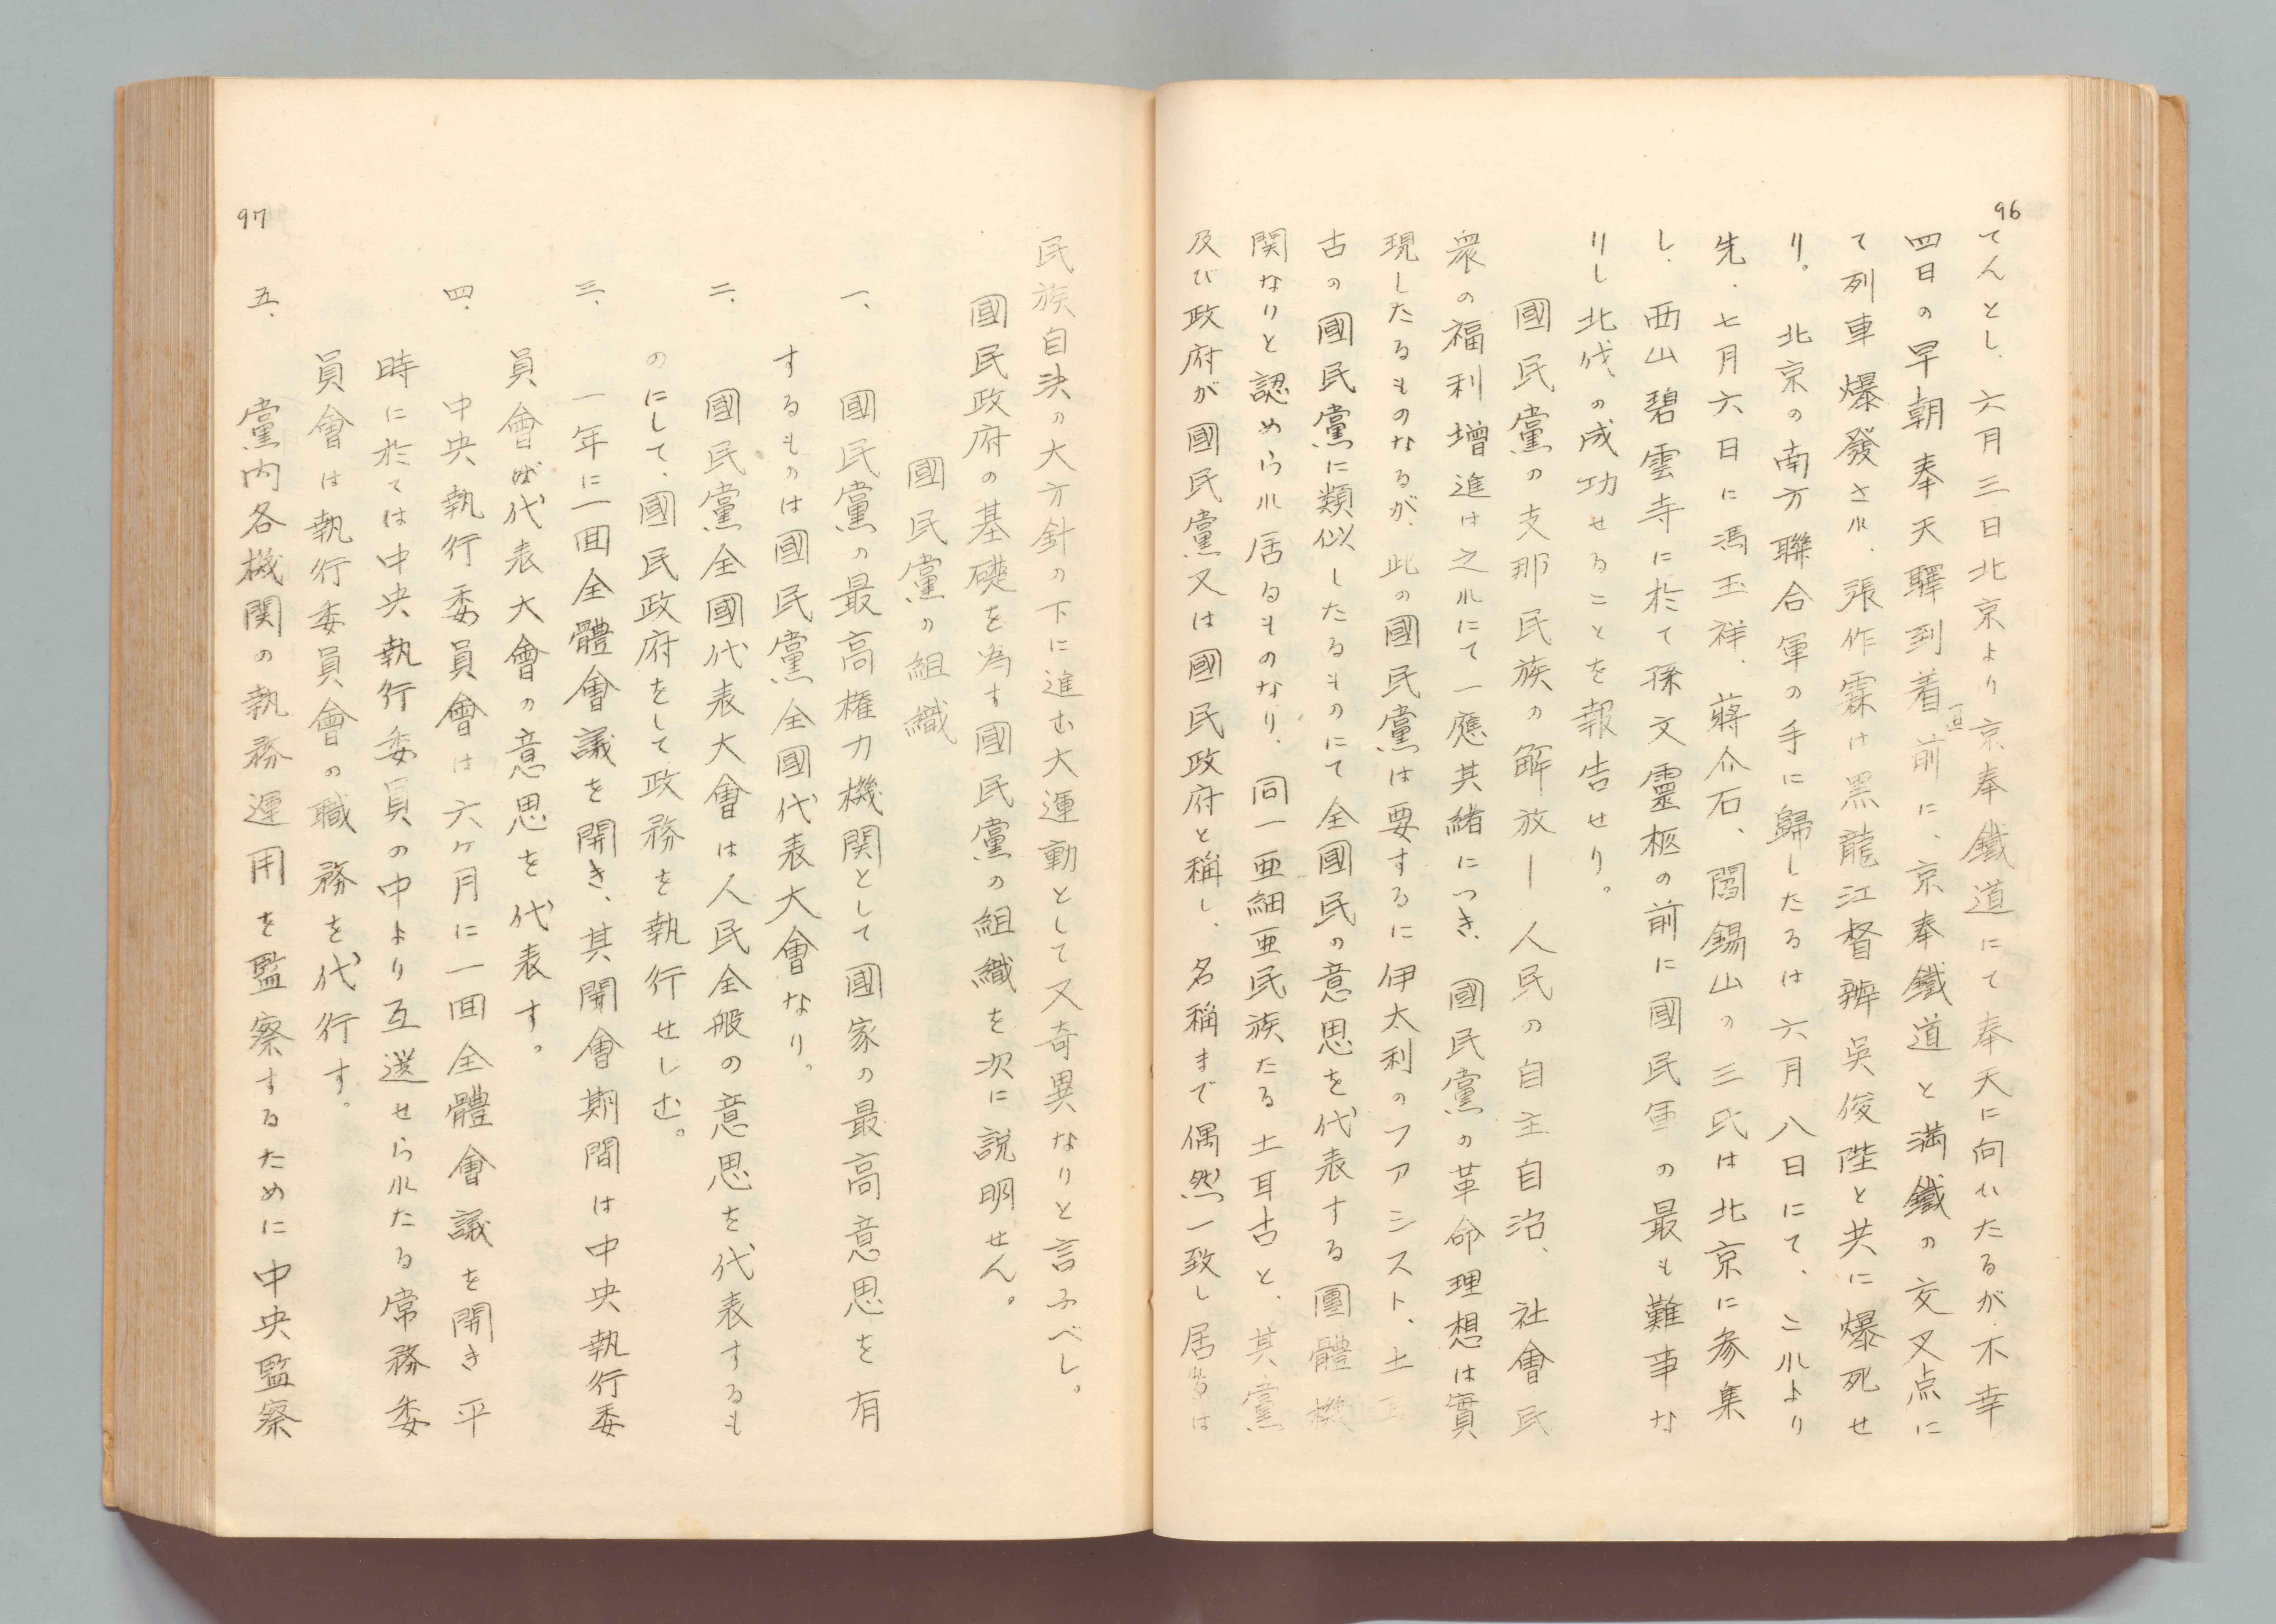 96
てんとし、六月三日北京より京奉鐵道にて奉天に向いたるが、不幸
四日の早朝奉天驛到着直前に、京奉鐵道と満鐵の交叉点に
て列車爆發され、張作霖は黑龍江督辦吳俊陞と共に爆死せ
り。北京の南方聯合軍の手に歸したるは六月八日にて、これより
先、七月六日に馮玉祥、蔣介石、閻錫山の三氏は北京に參集
し、西山碧雲寺に於て孫文靈柩の前に國民軍の最も難事な
りし北伐の成功せることを報告せり。
國民黨の支那民族の解放ー人民の自主自治、社會民
衆の福利增進は之れにて一應其緒につき、國民黨の革命理想は實
現したるものなるが、此の國民黨は要するに伊太利のファシスト、土耳
古の國民黨に類似したるものにて全國民の意思を代表する團體機
関なりと認められ居るものなり、同一亜細亜民族たる土耳古と、其黨
及び政府が國民黨又は國民政府と稱し、名稱まで偶然一致し居るは
民族自決の大方針の下に進む大運動として又奇異なりと言ふべし。
國民政府の基礎を為す國民黨の組織を次に説明せん。
國民黨の組織
一、國民黨の最高権力機関として國家の最高意思を有
するものは國民黨全國代表大會なり。
二、國民黨全國代表大會は人民全般の意思を代表するも
のにして、國民政府をして政務を執行せしむ。
三、一年に一回全體會議を開き、其閉會期間は中央執行委
員會が代表大會の意思を代表す。
四、中央執行委員會は六ヶ月に一回全體會議を開き平
時に於ては中央執行委員の中より互選せられたる常務委
員會は執行委員會の職務を代行す。
五、黨内各機関の執務運用を監察するために中央監察
97